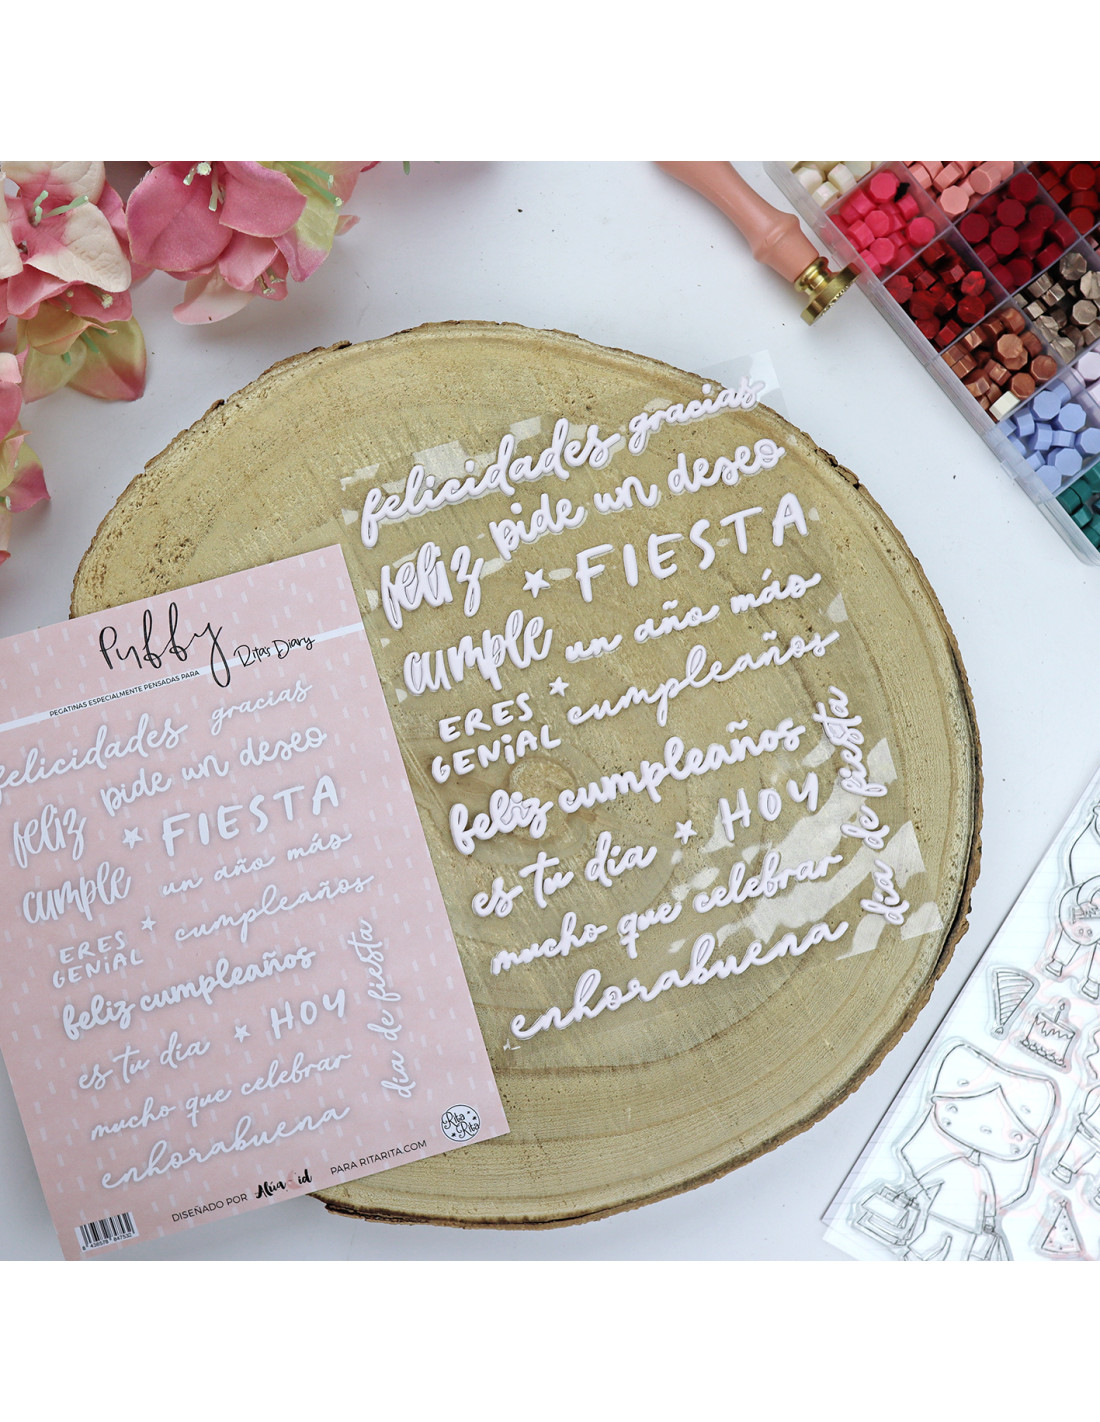 felicidades gracias
pide un deseo
feliz
FIESTA
cumple
un año más
ERES
GENiAL
cumpleaños
feliz cumpleaños
es tu día
HOY
día de fiesta
mucho que celebrar
enhorabuena
Puffy
Ritas Diary
PEGATINAS ESPECIALMENTE PENSADAS PARA
felicidades gracias
pide un deseo
feliz
FIESTA
cumple
un año más
ERES
GENiAL
cumpleaños
feliz cumpleaños
es tu día
HOY
día de fiesta
mucho que celebrar
enhorabuena
Rita
Rita
DISEÑADO POR Alúa Cid PARA RITARITA.COM
8 436578 847532